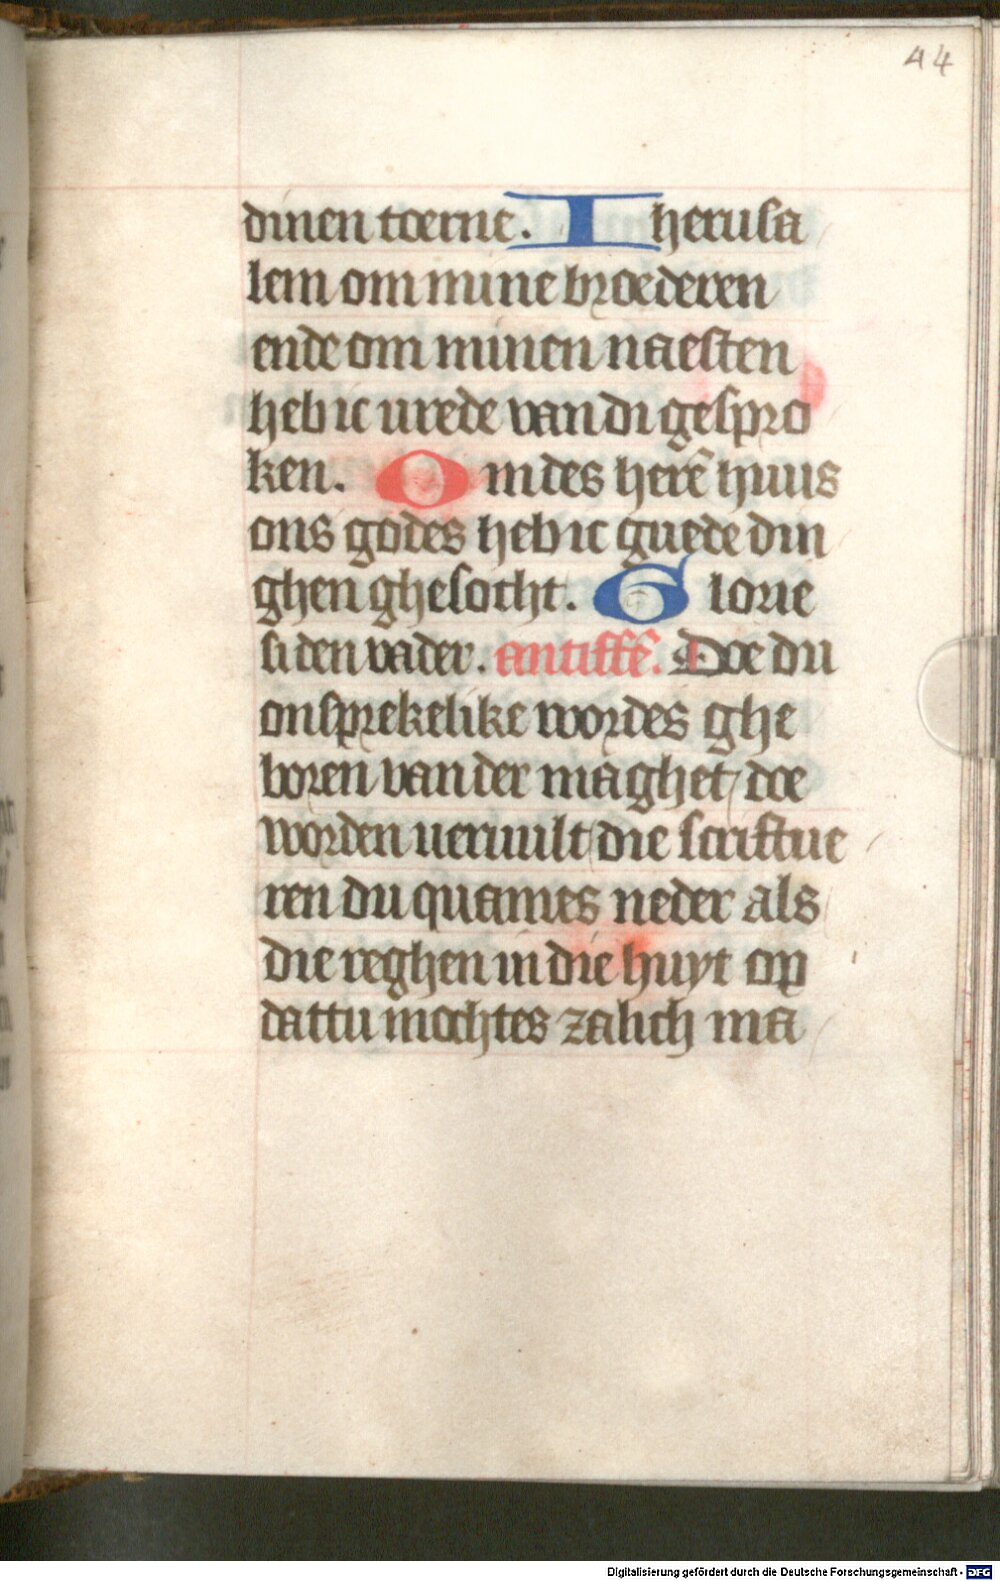 44
dinen toerne. Iherusa
lem om mine broederen
ende om minen naesten
heb ic urede van di gespro
ken. Om des herē huus
ons godes heb ic guede din
ghen ghesocht. Glorie
si den vader. antiffē. Doe du
onsprekelike wordes ghe
boren van der maghet/ doe
worden ueruult die scriftue
ren du quames neder als
die reghen in die huyt op
dattu mochtes zalich ma
Digitalisierung gefördert durch die Deutsche Forschungsgemeinschaft - DFG